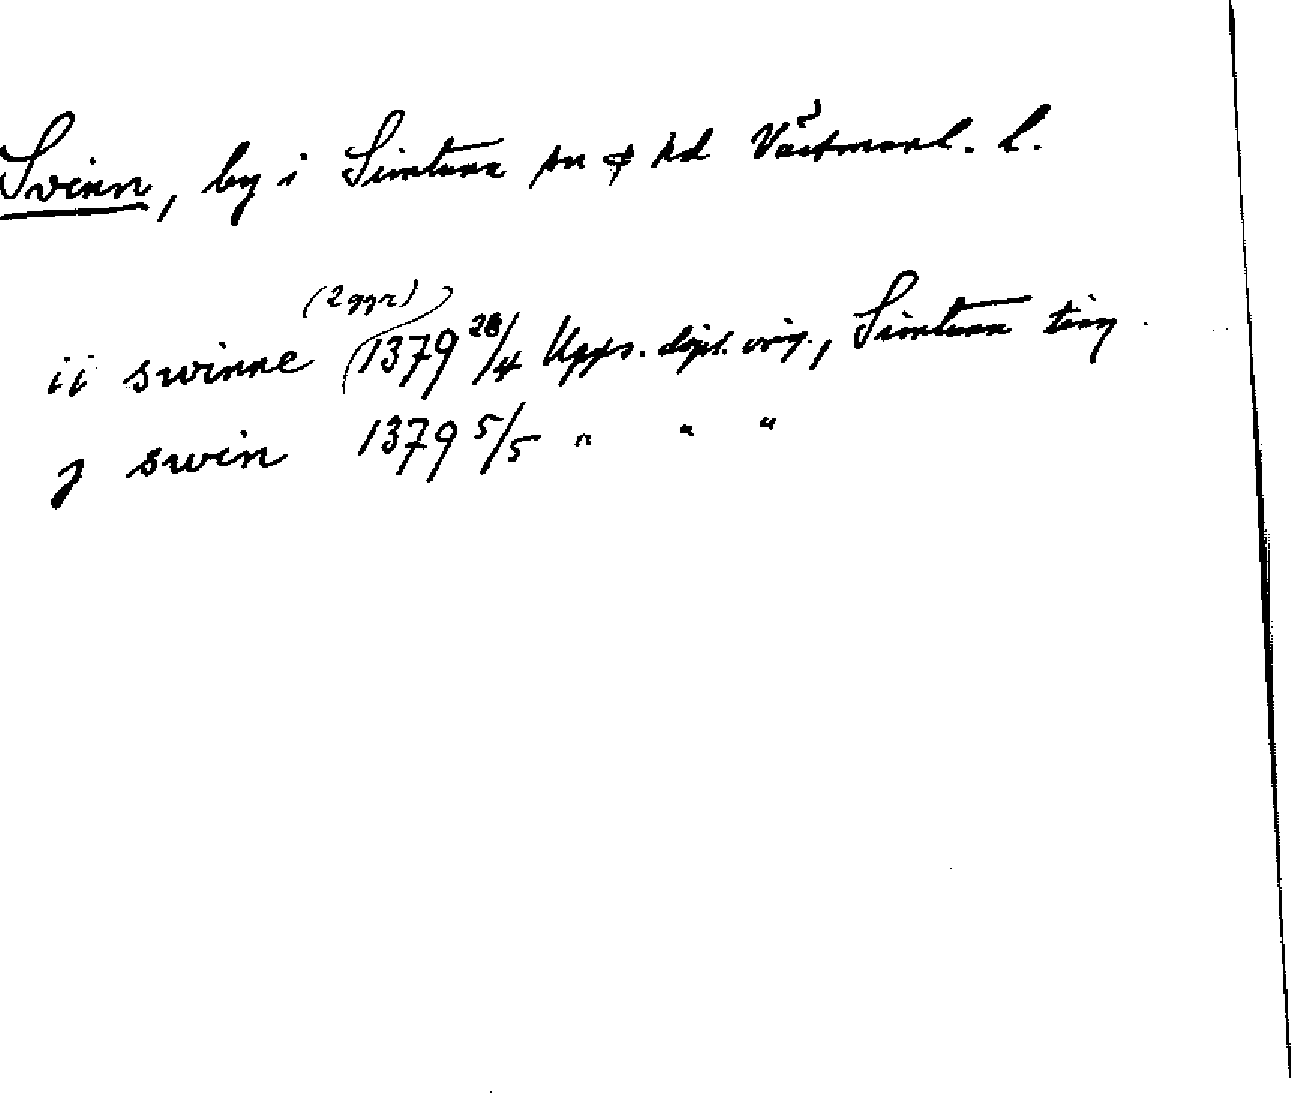 Svinn, by i Simtuna sn o hd Västmanl. l.
(2 ggr)
ij swinne 1379 28/4 Upps. dipl. orig., Simtuna ting
j swin 1379 5/5 " " "